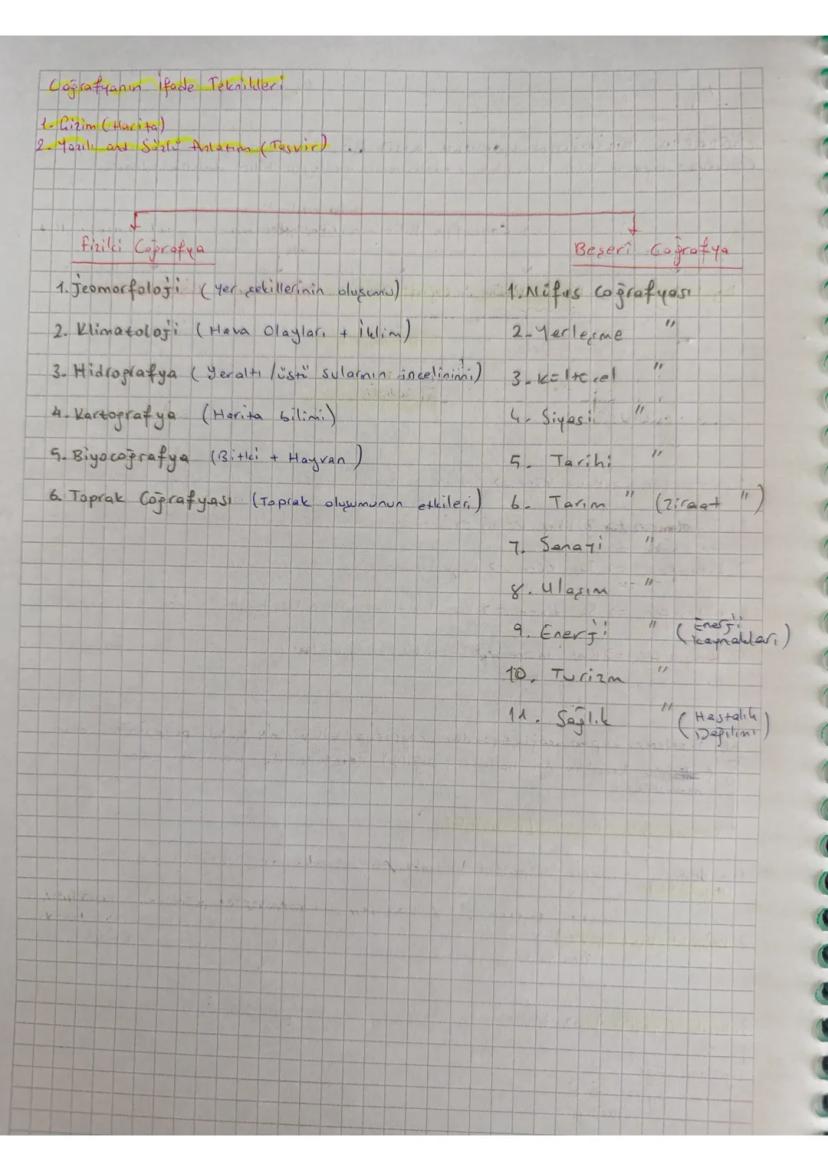 Coğrafyanın İfade Teknikleri
1- Çizim (Harita)
2- Yazılı Sözlü Anlatım (Tasvir)
Fiziki Coğrafya
1. Jeomorfoloji (Yer şekillerinin oluşumu)
2. Klimatoloji (Hava Olayları + İklim)
3- Hidrografya (Yeraltı /üstü sularının incelinimi)
4- Kartografya (Harita bilimi)
5. Biyocoğrafya (Bitki + Hayvan)
6. Toprak Coğrafyası (Toprak oluşumunun etkileri)
Beşeri Coğrafya
1. Nüfus Coğrafyası
2- Yerleşme "
3- Kültürel "
4. Siyasi "
5. Tarihi "
6. Tarım " (Ziraat ")
7. Sanayi "
8. Ulaşım "
9. Enerji " (Enerji
kaynakları)
10. Turizm "
11. Sağlık " (Hastalık
Dağılımı)